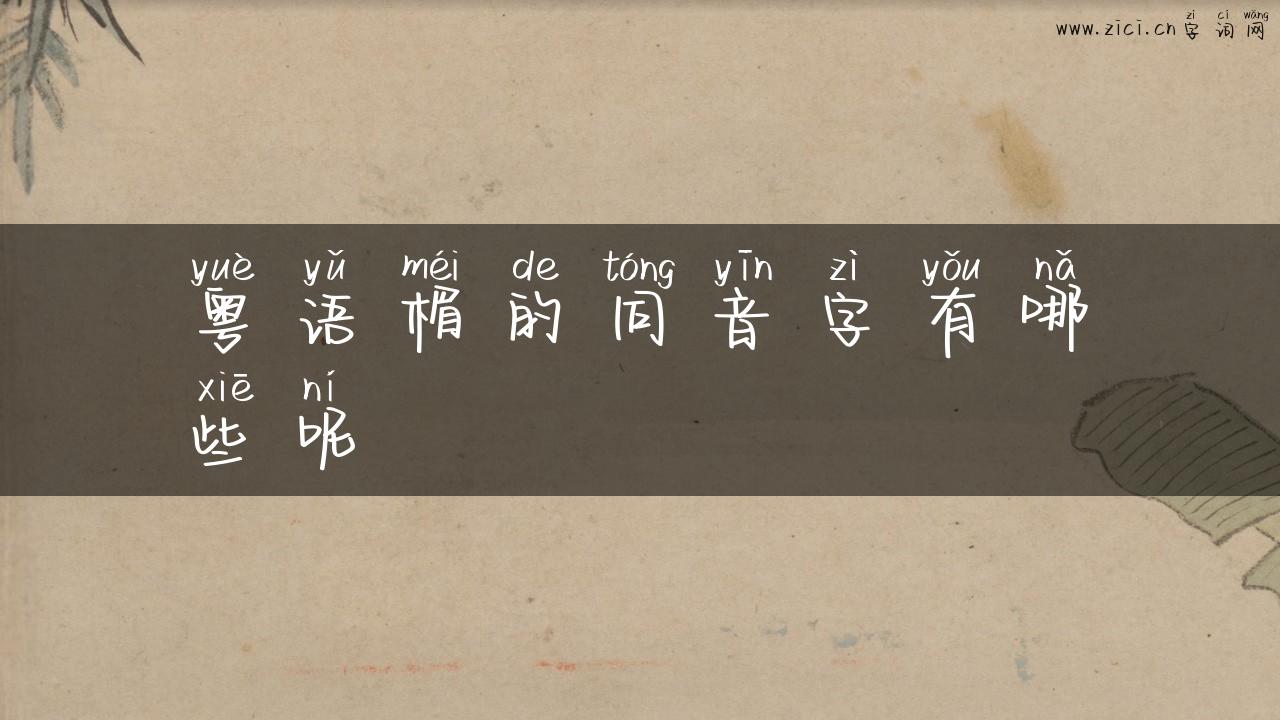 zì cí wǎng
www.zici.cn 字 词 网
yuè yǔ méi de tóng yīn zì yǒu nǎ
粤 语 楣 的 同 音 字 有 哪
xiē ní
些 呢